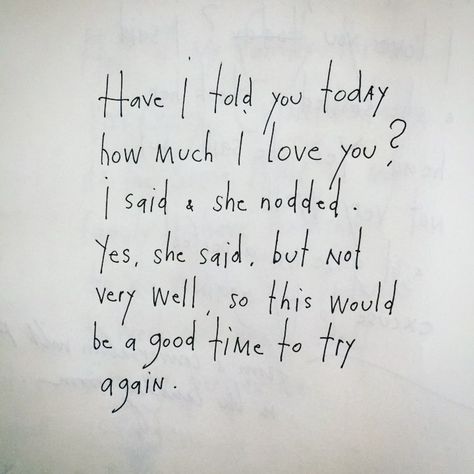 Have i told you today
how much I love you?
i said & she nodded.
Yes, she said, but not
very well, so this would
be a good time to try
again.